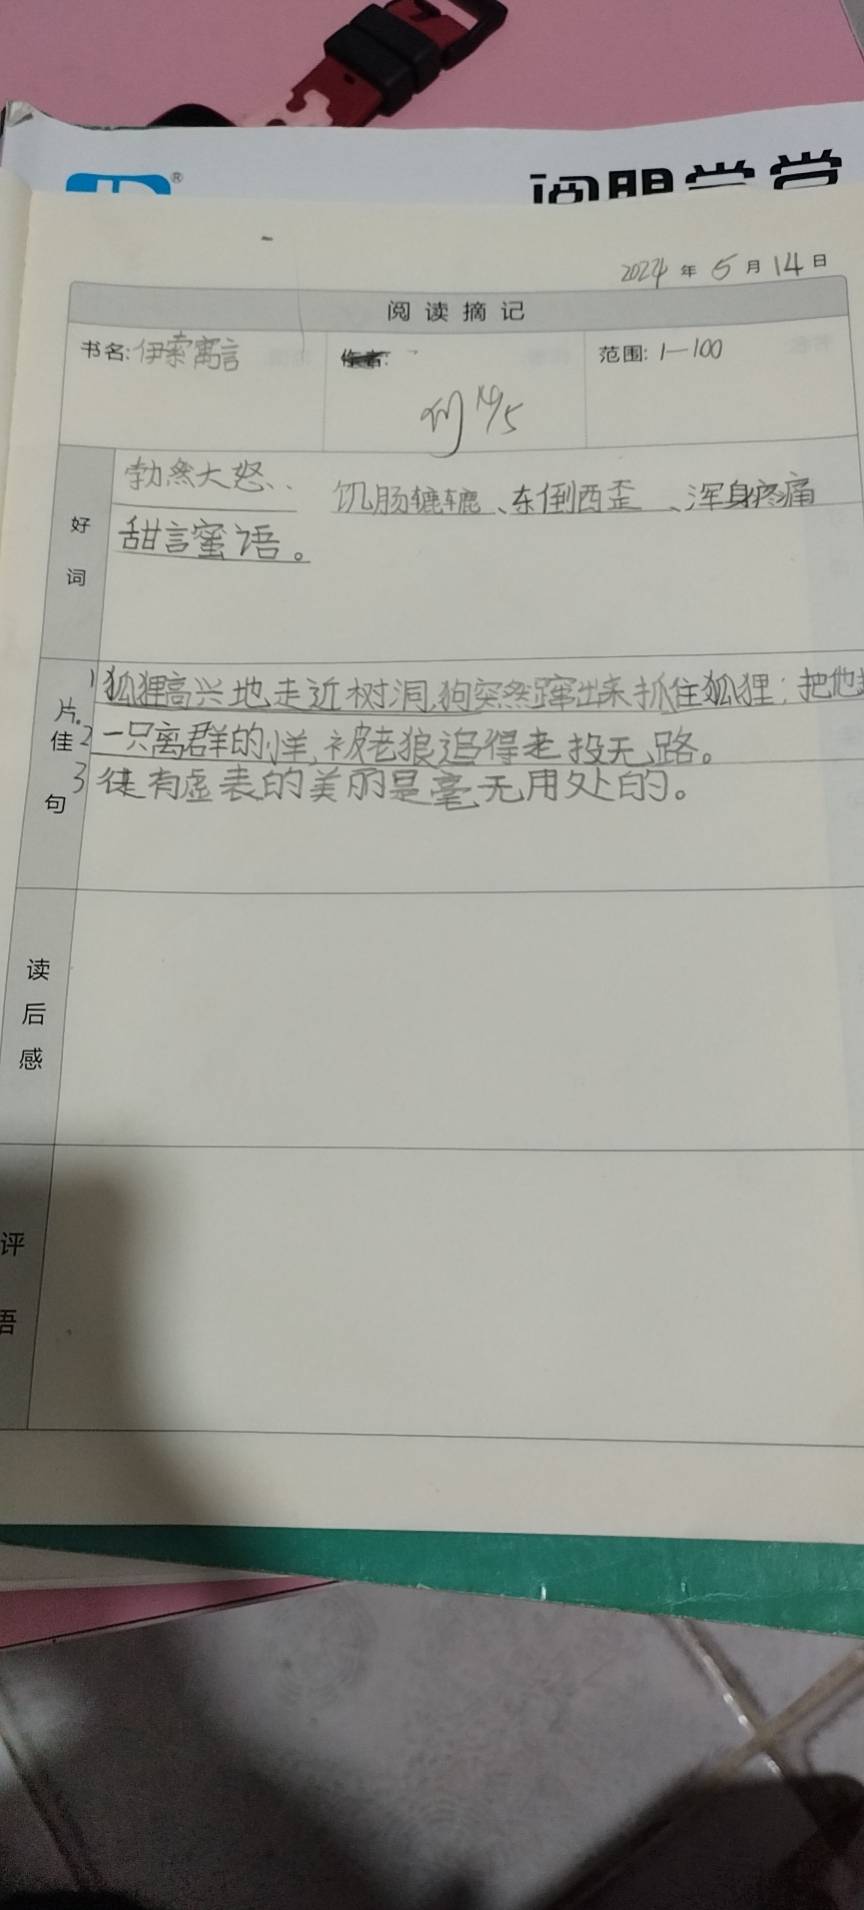 ®
2024年5月14日
阅读摘记
书名:伊索寓言
范围:1—100
14/5
好词
勃然大怒、 饥肠辘辘、东倒西歪、浑身疼痛
甜言蜜语。
佳句
片.
1 狐狸高兴地走近树洞,狗突然蹿出来抓住狐狸;把他
2 一只离群的小羊,被老狼追得走投无路。
3 徒有虚表的美丽是毫无用处的。
读后感
评语